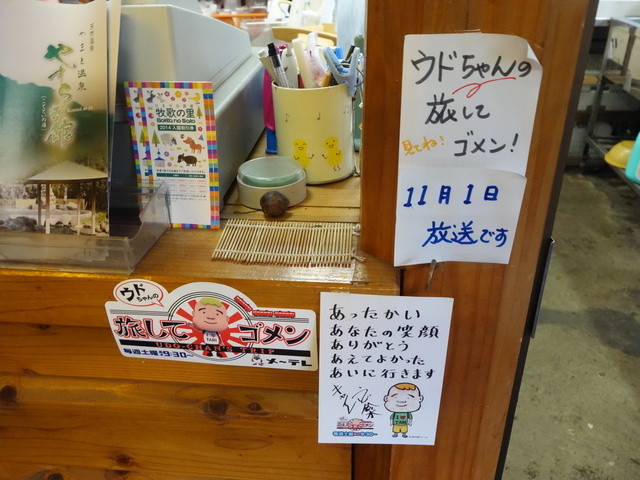 天然温泉
やまと温泉
やすらぎ館
牧歌の里
Bokka no Sato
2014 入園割引券
ウドちゃんの
旅して
見てね!
ゴメン!
11月1日
放送です
ウドちゃんの
旅して
ゴメン
UDO-CHAN'S TRIP
毎週土曜 9:30~
メ~テレ
あったかい
あなたの笑顔
ありがとう
あえてよかった
あいに行きます